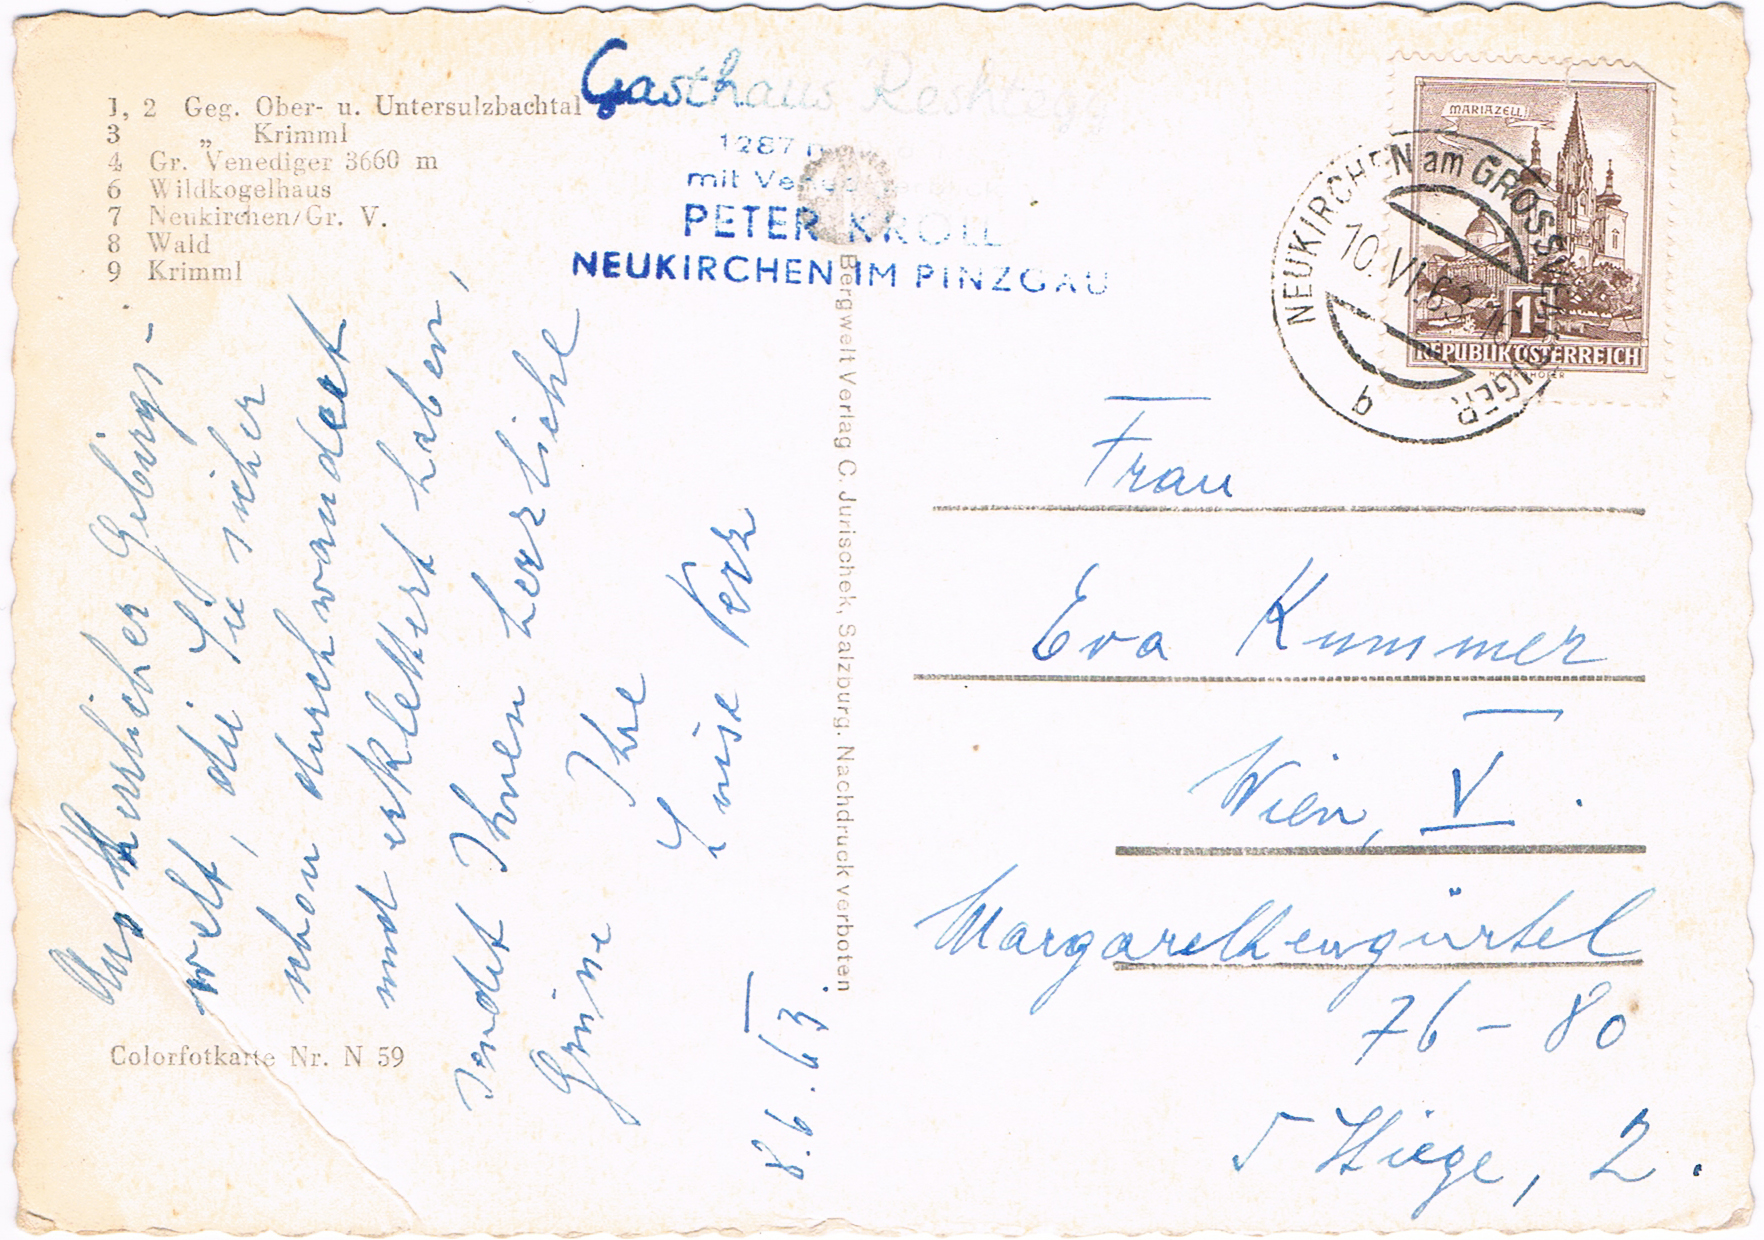 1, 2 Geg. Ober- u. Untersulzbachtal
3 „ Krimml
4 Gr. Venediger 3660 m
6 Wildkogelhaus
7 Neukirchen/Gr. V.
8 Wald
9 Krimml
Gasthaus Reshtegg
1287 m
mit
PETER KROLL
NEUKIRCHEN IM PINZGAU
MARIAZELL
1S
REPUBLIK ÖSTERREICH
NEUKIRCHEN am GROSSVENEDIGER
10. VI. 63
a
Aus herrlicher Gebirgs-
welt, die Sie sicher
schon durchwandert
und erklettert haben,
sendet Ihnen herzliche
Grüsse Ihre
Luise
8. 6. 63.
Colorfotkarte Nr. N 59
Bergwelt Verlag C. Jurischek, Salzburg. Nachdruck verboten
Frau
Eva Kummer
Wien, V.
Margarethengürtel
76 - 80
5 Stiege, 2.